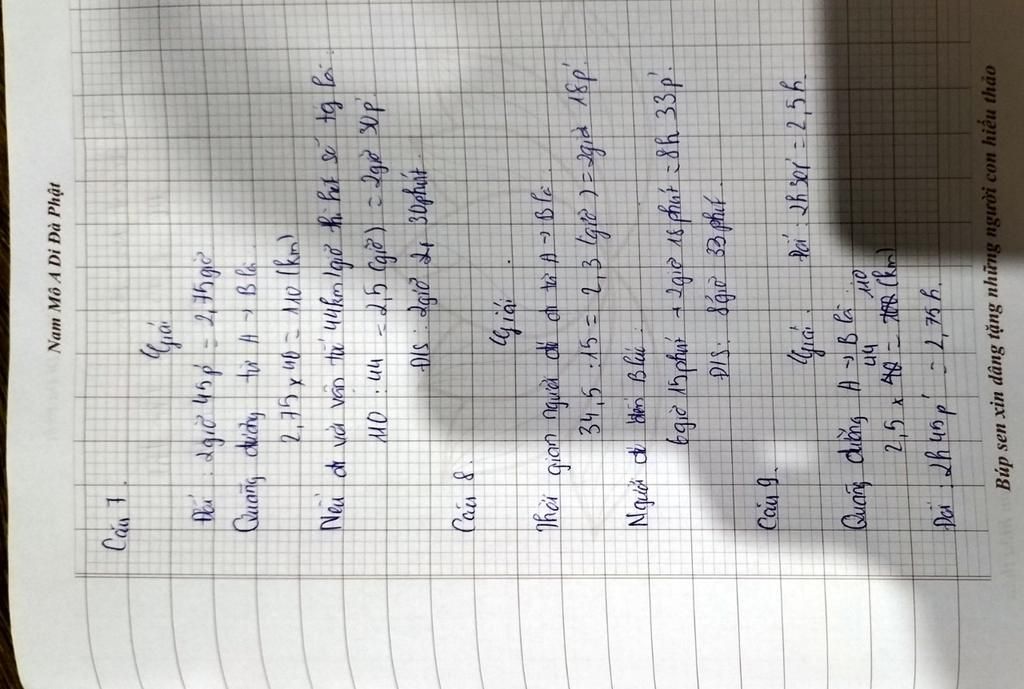 Nam Mô A Di Đà Phật
Câu 7.
Giải
Đổi : 2giờ 45p' = 2,75giờ
Quãng đường từ A → B là
2,75 x 40 = 110 (km)
Nếu đi với vận tố 44km/giờ thì hết số tg là :
110 : 44 = 2,5 (giờ) = 2giờ 30p'
Đ/S : 2giờ 30phút.
Câu 8.
Giải.
Thời gian người đi từ A → B là.
34,5 : 15 = 2,3 (giờ) = 2giờ 18p'
Người đi đến B lúc:
6giờ 15phút + 2giờ 18phút = 8h 33p'.
Đ/S: 8giờ 33phút.
Câu 9.
Giải.
Đổi : 2h30p' = 2,5h.
Quãng đường A → B là
2,5 x 44 = 110 (km)
Đổi : 2h45p' = 2,75h.
Búp sen xin dâng tặng những người con hiếu thảo